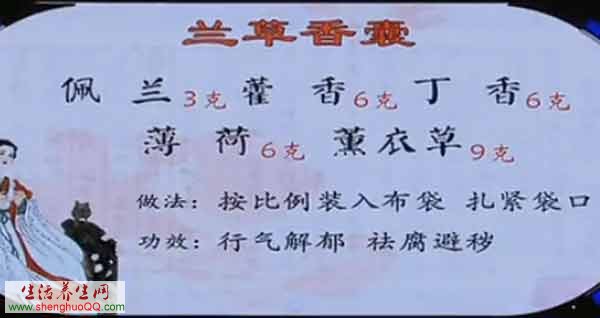 兰草香囊
佩兰3克 藿香6克 丁香6克
薄荷6克 薰衣草9克
做法：按比例装入布袋 扎紧袋口
功效：行气解郁 祛腐避秽
生活养生网
www.shenghuoQQ.com